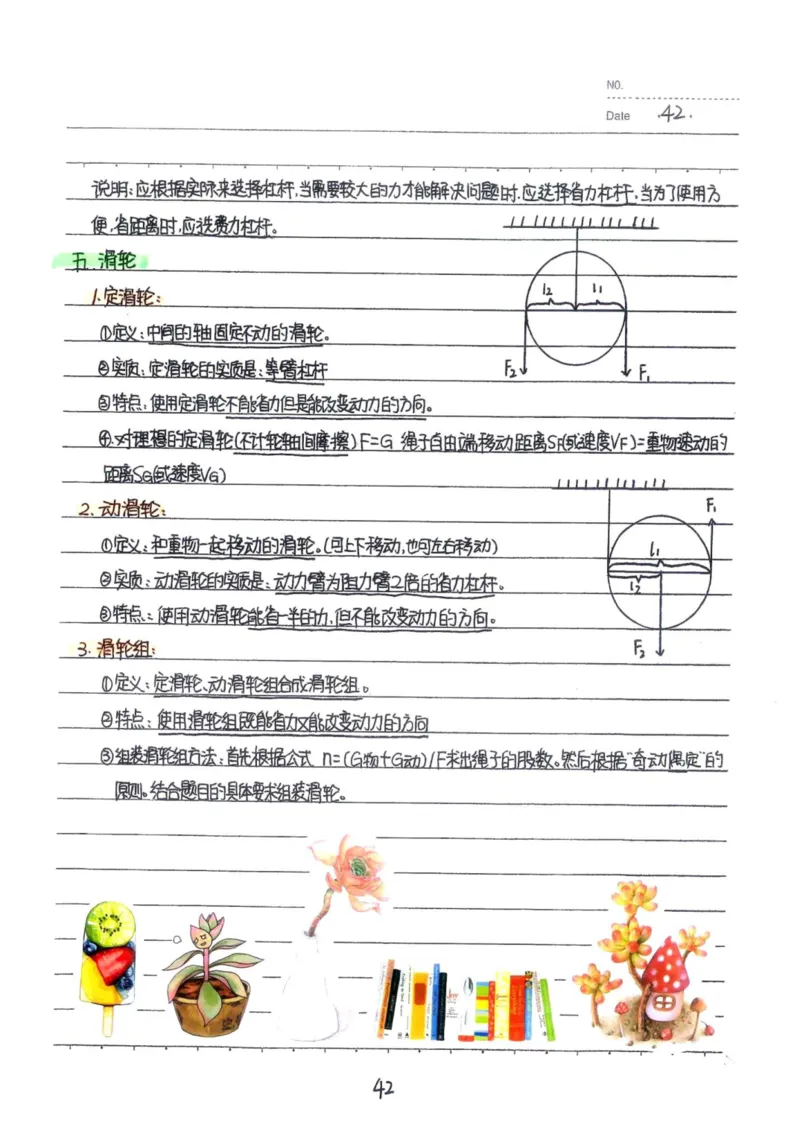 NO.
Date .42.
说明:应根据实际来选择杠杆,当需要较大的力才能解决问题时,应选择省力杠杆,当为了使用方
便,省距离时,应选费力杠杆。
五.滑轮
1.定滑轮:
①定义:中间的轴固定不动的滑轮。
②实质:定滑轮的实质是:等臂杠杆
③特点:使用定滑轮不能省力但是能改变动力的方向。
④.对理想的定滑轮(不计轮轴间摩擦)F=G 绳子自由端移动距离SF(或速度VF)=重物移动的
距离SG(或速度VG)
l2 l1
F2 F1
2.动滑轮:
①定义:和重物一起移动的滑轮。(可上下移动,也可左右移动)
②实质:动滑轮的实质是:动力臂为阻力臂2倍的省力杠杆。
③特点:使用动滑轮能省一半的力,但不能改变动力的方向。
F1
l1
l2
F2
3.滑轮组:
①定义:定滑轮、动滑轮组合成滑轮组。
②特点:使用滑轮组既能省力又能改变动力的方向
③组装滑轮组方法:首先根据公式 n=(G物+G动)/F求出绳子的股数。然后根据"奇动偶定"的
原则。结合题目的具体要求组装滑轮。
42